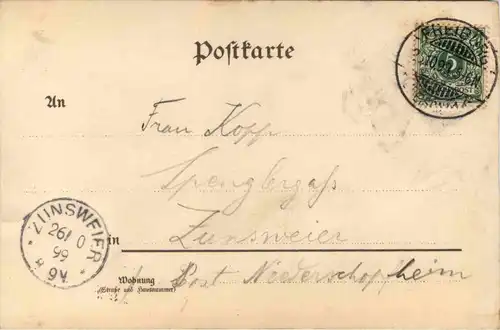 FREIBURG
Postkarte
5
An
Frau Kopp
Spenglergaß
ZUNSWEIER
26/10
99
in
Zunsweier
Wohnung
(Straße und Hausnummer)
Post Niederschopfheim